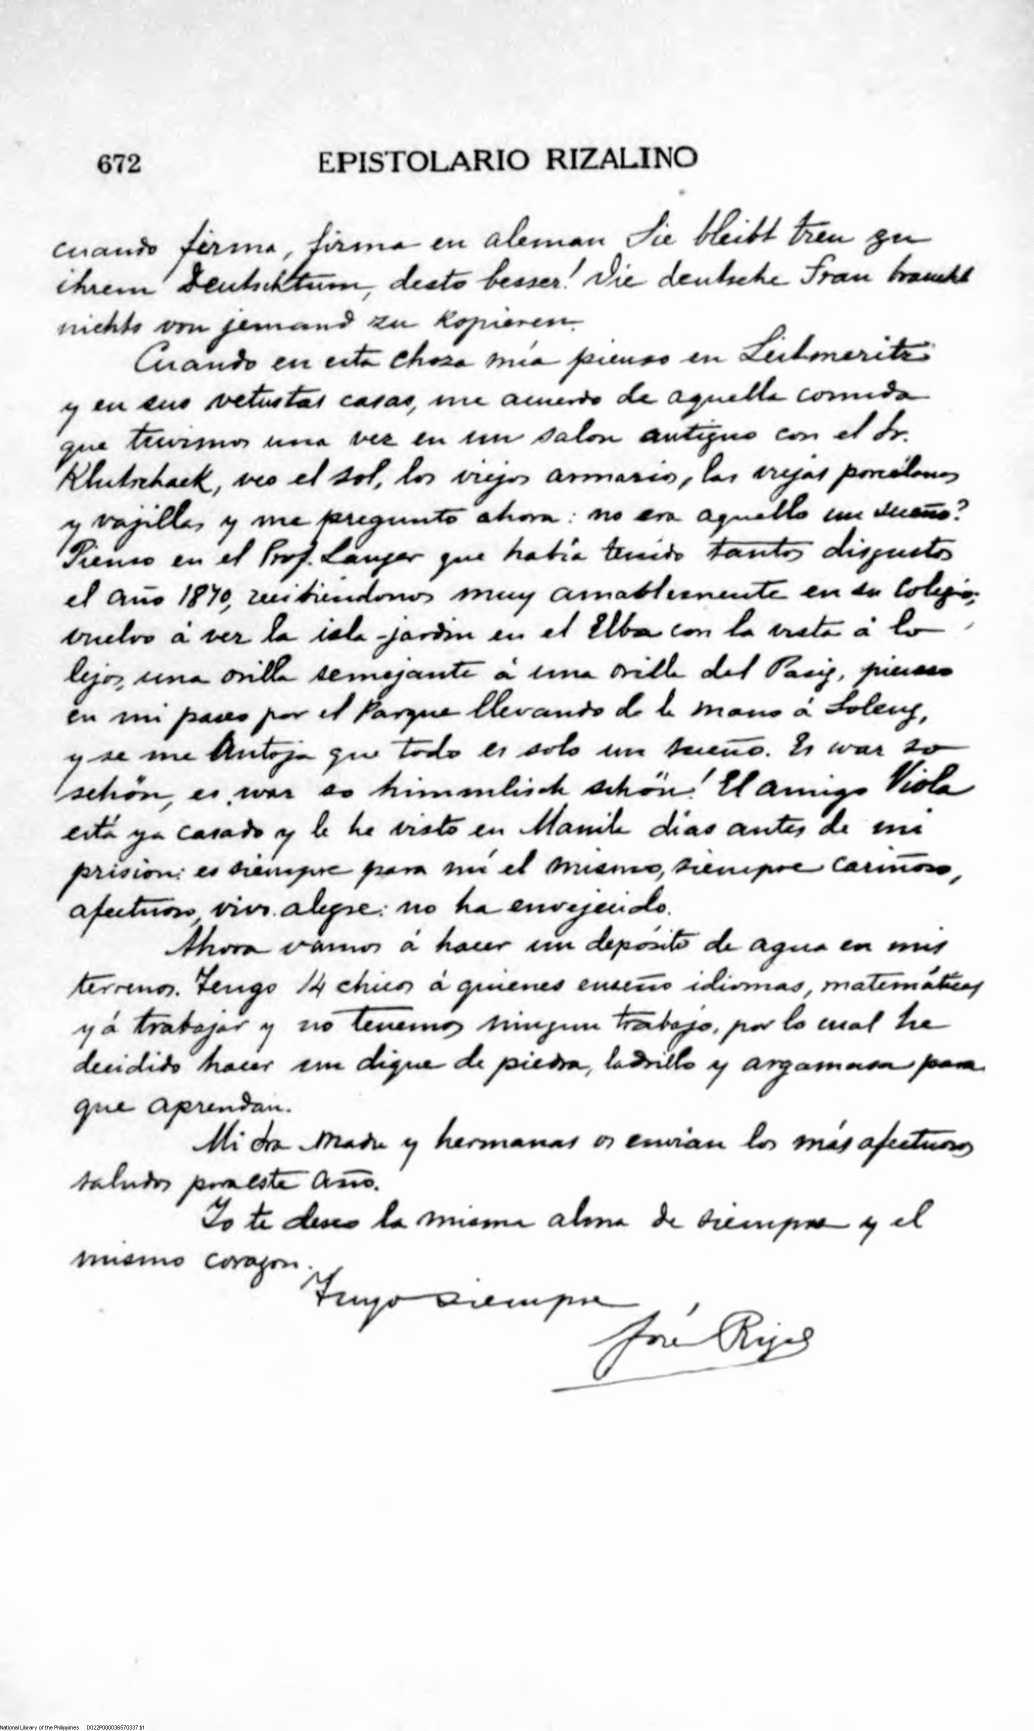 672 EPISTOLARIO RIZALINO
cuando firma, firma en aleman Sie bleibt treu zu
ihrem Deutschtum, desto besser! Die deutsche Frau braucht
nichts von jemand zu kopieren.
Cuando en esta choza mía pienso en Leitmeritz
y en sus vetustas casas, me acuerdo de aquella comida
que tuvimos una vez en un salon antiguo con el Dr.
Klutschack, veo el sol, los viejos armarios, las viejas porcelanas
y vajillas y me pregunto ahora: no era aquello un sueño?
Pienso en el Prof. Langer que había tenido tantos disgustos
el año 1870, recibiendonos muy amablemente en su colegio;
vuelvo á ver la isla-jardin en el Elba con la vista á lo
lejos, una orilla semejante á una orilla del Pasig, pienso
en mi paseo por el Parque llevando de la mano á Loleng,
y se me antoja que todo es solo un sueño. Es war so
schön, es war so himmlisch schön! El amigo Viola
está ya casado y le he visto en Manila días antes de mi
prision: es siempre para mí el mismo, siempre cariñoso,
afectuoso, vivo. alegre: no ha envejecido.
Ahora vamos á hacer un depósito de agua en mis
terrenos. Tengo 14 chicos á quienes enseño idiomas, matemáticas
y á trabajar y no tenemos ningun trabajo, por lo cual he
decidido hacer un dique de piedra, ladrillo y argamasa para
que aprendan.
Mi Sra Madre y hermanas os envian los más afectuosos
saludos para este año.
Yo te deseo la misma alma de siempre y el
mismo corazon.
Tuyo siempre
José Rizal
National Library of the Philippines